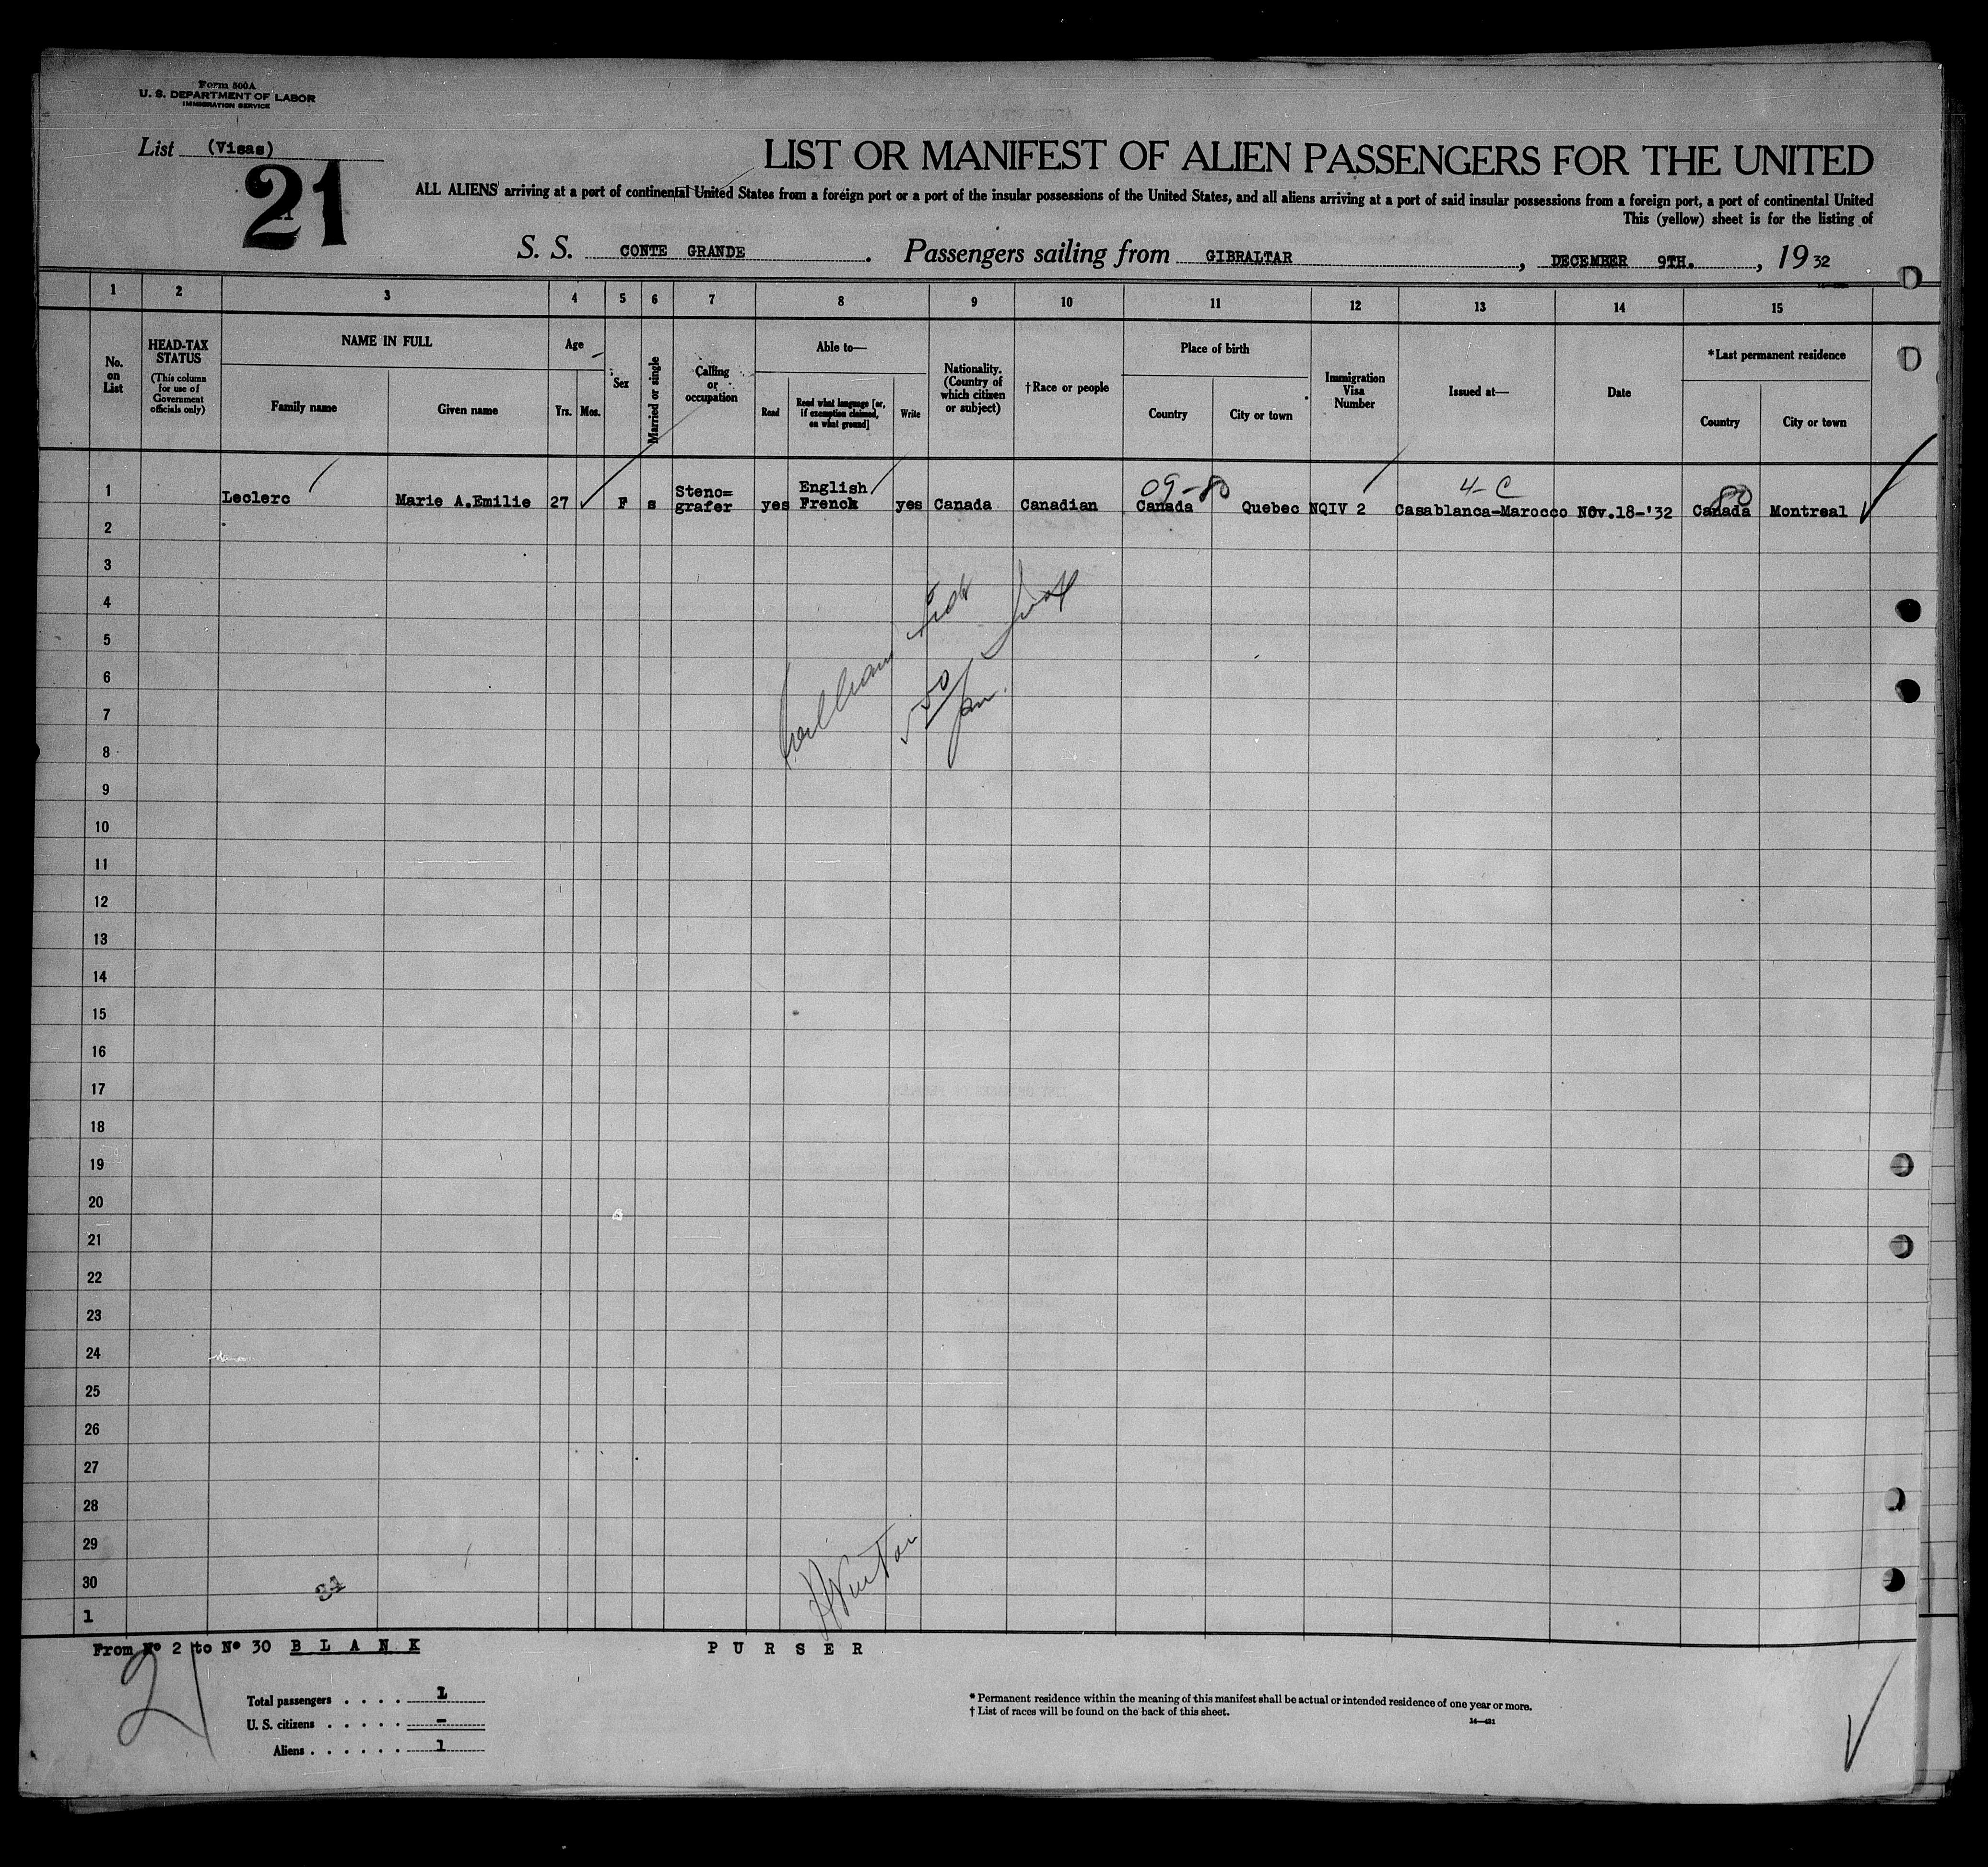 Form 500A
U. S. DEPARTMENT OF LABOR
IMMIGRATION SERVICE
List (Visas)
21
LIST OR MANIFEST OF ALIEN PASSENGERS FOR THE UNITED
ALL ALIENS arriving at a port of continental United States from a foreign port or a port of the insular possessions of the United States, and all aliens arriving at a port of said insular possessions from a foreign port, a port of continental United
This (yellow) sheet is for the listing of
S. S. CONTE GRANDE . Passengers sailing from GIBRALTAR , DECEMBER 9TH. , 19 32
1 2 3 4 5 6 7 8 9 10 11 12 13 14 15
No. on List
HEAD-TAX STATUS
(This column for use of Government officials only)
NAME IN FULL
Family name
Given name
Age
Yrs.
Mos.
Sex
Married or single
Calling or occupation
Able to—
Read
Read what language [or, if exemption claimed, on what ground]
Write
Nationality. (Country of which citizen or subject)
†Race or people
Place of birth
Country
City or town
Immigration Visa Number
Issued at—
Date
*Last permanent residence
Country
City or town
09-80 4-C 80
1 Leclerc Marie A.Emilie 27 F s Steno=grafer yes English French yes Canada Canadian Canada Quebec NQIV 2 Casablanca-Marocco Nov.18-'32 Canada Montreal
2
3
4
5
6
7
8
9
10
11
12
13
14
15
16
17
18
19
20
21
22
23
24
25
26
27
28
29
30
1
From Nº 2 to Nº 30 B L A N K
P U R S E R
21
Total passengers . . . . 1
U. S. citizens . . . . . -
Aliens . . . . . . 1
* Permanent residence within the meaning of this manifest shall be actual or intended residence of one year or more.
† List of races will be found on the back of this sheet.